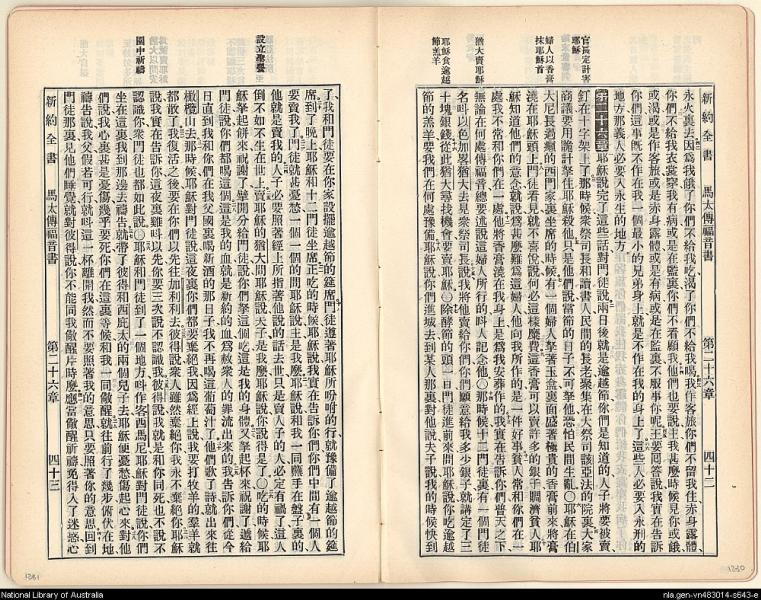 新約全書 馬太傳福音書 第二十六章 四十二
官長定計害
耶穌
婦人以香膏
抹耶穌首
猶大賣耶穌
耶穌食逾越
節羔羊
永火裏去因為我餓了你們不給我吃渴了你們不給我喝我作客旅你們不留我住赤身露體
你們不給我衣裳穿我有病或是在監裏你們不看顧我他們也要說主我甚麼時候見你或餓
或渴或是作客旅或是赤身露體或是有病或是在監裏不服事你呢王要回答說我實在告訴
你們這事旣不作在我一個最小的兄弟身上就是不作在我的身上了這些人必要入永刑的
地方那義人必要入永生的地方
第二十六章耶穌說完了這些話對門徒說兩日後就是逾越節你們是知道的人子將要被賣
釘在十字架上了那時候衆祭司長和讀書人民間的長老聚集在大祭司該亞法的院裏大家
商議要用詭計拏住耶穌殺他只是他們說當節的日子不可拏他恐怕民間生亂〇耶穌在伯
大尼長過癩的西門家裏坐席的時候有一個婦人拏著玉盒裏面盛著極貴的香膏前來將膏
澆在耶穌頭上門徒看見就不喜悅說何必這樣糜費這香膏可以賣許多的銀子賙濟貧人耶
穌知道他們的意念就說為甚麼難為這婦人他向我所作的是一件好事貧人常和你們在一
處我不常和你們在一處他將香膏澆在我身上是為我安葬作的我實在告訴你們普天之下
無論在何處傳福音總要述說這婦人所行的叫人記念他〇那時候十二門徒裏有一個門徒
名叫以色加畧猶大去見衆祭司長說我將他賣給你們你們願意給我多少銀子就講定了三
十塊銀錢從此猶大尋找機會要賣耶穌〇除酵節的頭一日門徒進前來問耶穌說你吃逾越
節的羔羊要我們在何處豫備耶穌說你們進城去到某人那裏對他說夫子說我的時候快到
設立聖餐
園中祈禱
了我和門徒要在你家設擺逾越節的筵席門徒遵著耶穌所吩咐的行就豫備了逾越節的筵
席到了晚上耶穌和十二門徒坐席正吃的時候耶穌說我實在告訴你們你們中間有一個人
要賣我了門徒就甚憂愁一個一個的問耶穌說主是我麼耶穌說和我一同蘸手在盤子裏的
他就是賣我的人子必要照著經上所指著他說的話去世只是賣人子的人必定有禍了這人
倒不如不生在世上賣耶穌的猶大問耶穌說夫子是我麼耶穌說你說得是了〇吃的時候耶
穌拏起餅來祝謝了擘開分給門徒說你們拏這個吃這是我的身體又拏起杯來祝謝了遞給
門徒說你們都喝這個這是我的血就是新約的血為赦衆人的罪流出來的我告訴你們從今
日直到我和你們在我父國裏喝新酒的那日子我不再喝這葡萄汁了他們歌了詩就出來往
橄欖山去那時候耶穌對門徒說這夜裏你們都要棄絕我因為經上說我要打牧羊的羊羣就
都散了我復活之後要在你們以先往加利利去彼得說衆人雖然棄絕你我永不棄絕你耶穌
說我實在告訴你這夜裏雞叫以先你要三次說不認識我彼得說我就是和你同死也不說不
認識你衆門徒也都如此說〇耶穌和門徒到了一個地方叫作客西馬尼耶穌對門徒說你們
坐在這裏我到那邊去禱告就帶了彼得和西庇太的兩個兒子去耶穌便憂愁傷起心來對他
們說我心裏甚是憂傷幾乎要死你們在這裏等候和我一同儆醒就往前行了幾步俯伏在地
禱告說我父倘若可行就叫這一杯離開我然而不要照著我的意思只要照著你的意思回到
門徒那裏見他們睡覺就對彼得說你不能同我儆醒片時麼應當儆醒祈禱免得入了迷惑心
新約全書 馬太傳福音書 第二十六章 四十三
1281
1280
National Library of Australia
nla.gen-vn483014-s643-e